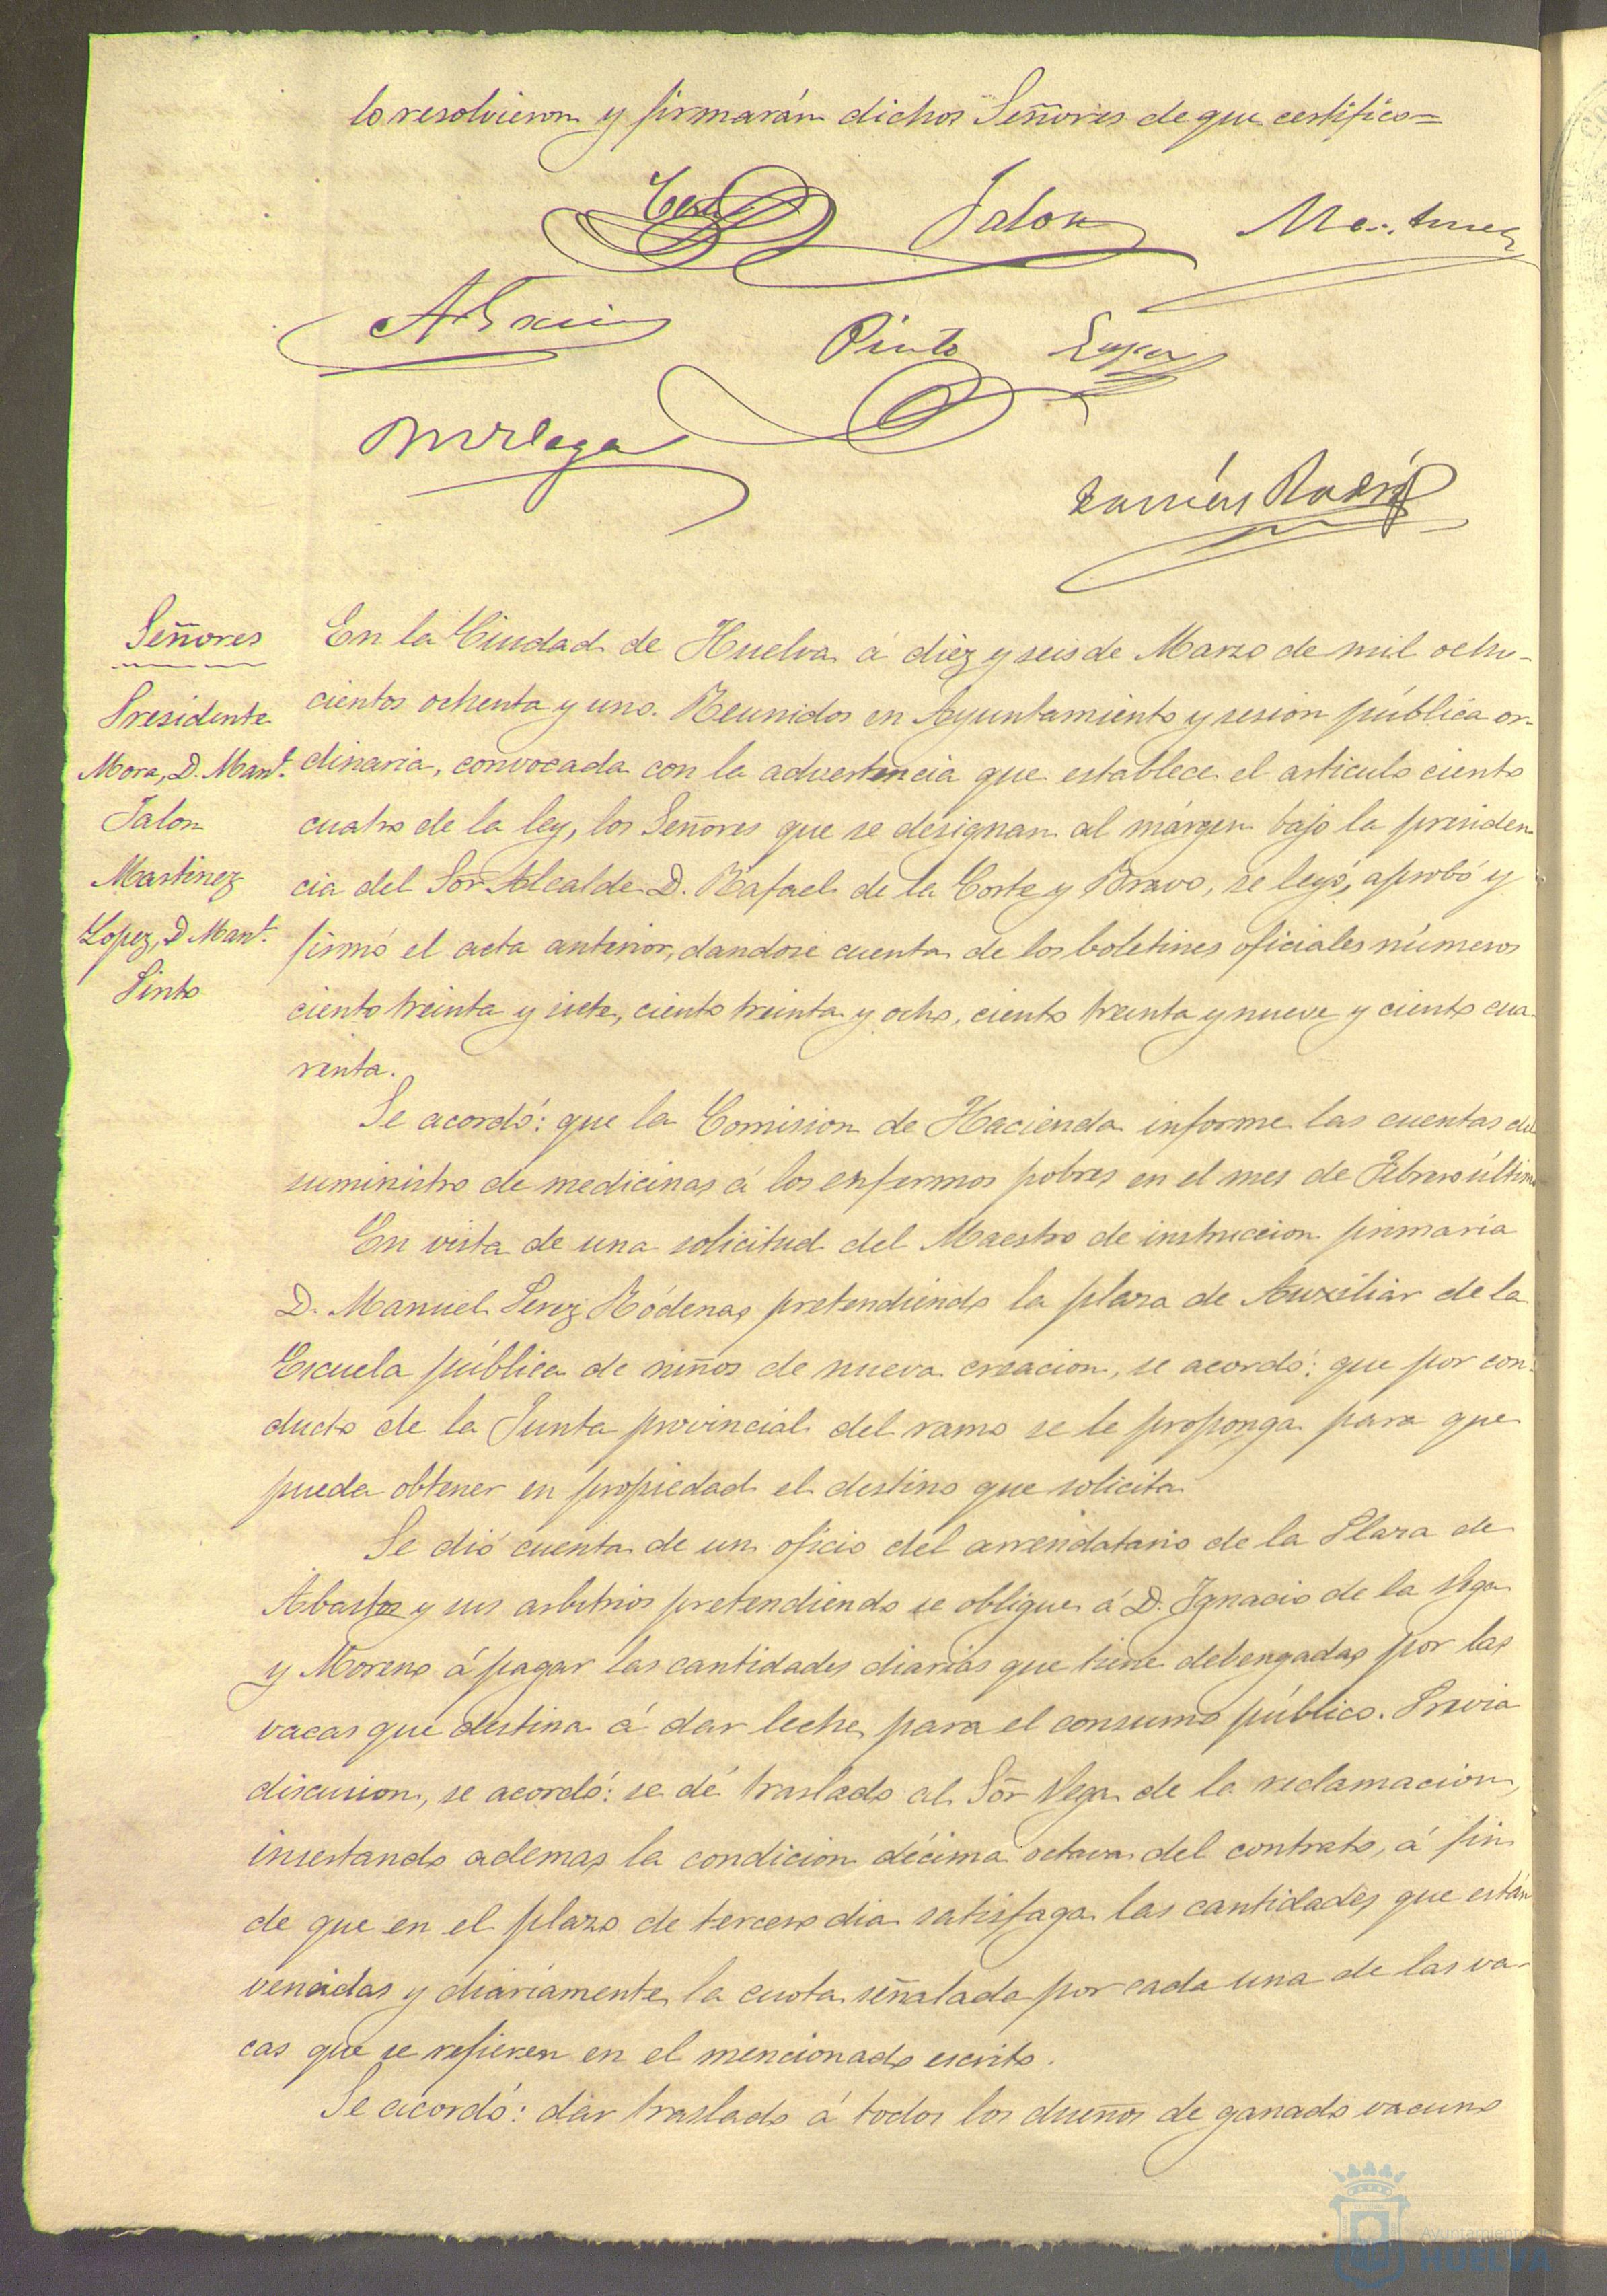 lo resolvieron y firmarán dichos Señores de que certifico=
Jalon
Pinto
Lopez
Ramón Rodrí
Señores
Presidente
Mora, D. Manl.
Jalon
Martinez
Lopez, D Manl.
Pinto
En la Ciudad de Huelva á diez y seis de Marzo de mil ocho-
cientos ochenta y uno. Reunidos en Ayuntamiento y sesion pública or-
dinaria, convocada con la advertencia que establece el articulo ciento
cuatro de la ley, los Señores que se designan al márgen bajo la presiden
cia del Sor. Alcalde D. Rafael de la Corte y Bravo, se leyó, aprobó y
firmó el acta anterior, dandose cuenta de los boletines oficiales números
ciento treinta y siete, ciento treinta y ocho, ciento treinta y nueve y ciento cua-
renta.
Se acordó: que la Comision de Hacienda informe las cuentas del
suministro de medicinas á los enfermos pobres en el mes de Febrero último
En vista de una solicitud del Maestro de instruccion primaria
D. Manuel Perez Ródenas pretendiendo la plaza de Auxiliar de la
Escuela pública de niños de nueva creacion, se acordó: que por con-
ducto de la Junta provincial del ramo se le proponga para que
pueda obtener en propiedad el destino que solicita.
Se dió cuenta de un oficio del arrendatario de la Plaza de
Abastos y sus arbitrios pretendiendo se obligue á D. Ignacio de la Vega
y Moreno á pagar las cantidades diarias que tiene debengadas por las
vacas que destina á dar leche para el consumo público. Previa
discusion, se acordó: se dé traslado al Sor Vega de la reclamacion,
insertando ademas la condicion décima octava del contrato, á fin
de que en el plazo de tercero dia satisfaga las cantidades que están
vencidas y diariamente la cuota señalada por cada una de las va-
cas que se refieren en el mencionado escrito.
Se acordó: dar traslado á todos los dueños de ganado vacuno
Ayuntamiento de
HUELVA